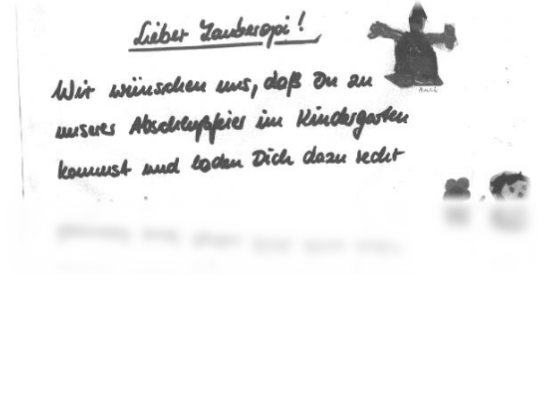 Lieber Zauberopi!
Wir wünschen uns, daß Du zu
unserer Abschlußfeier im Kindergarten
kommst und laden Dich dazu recht